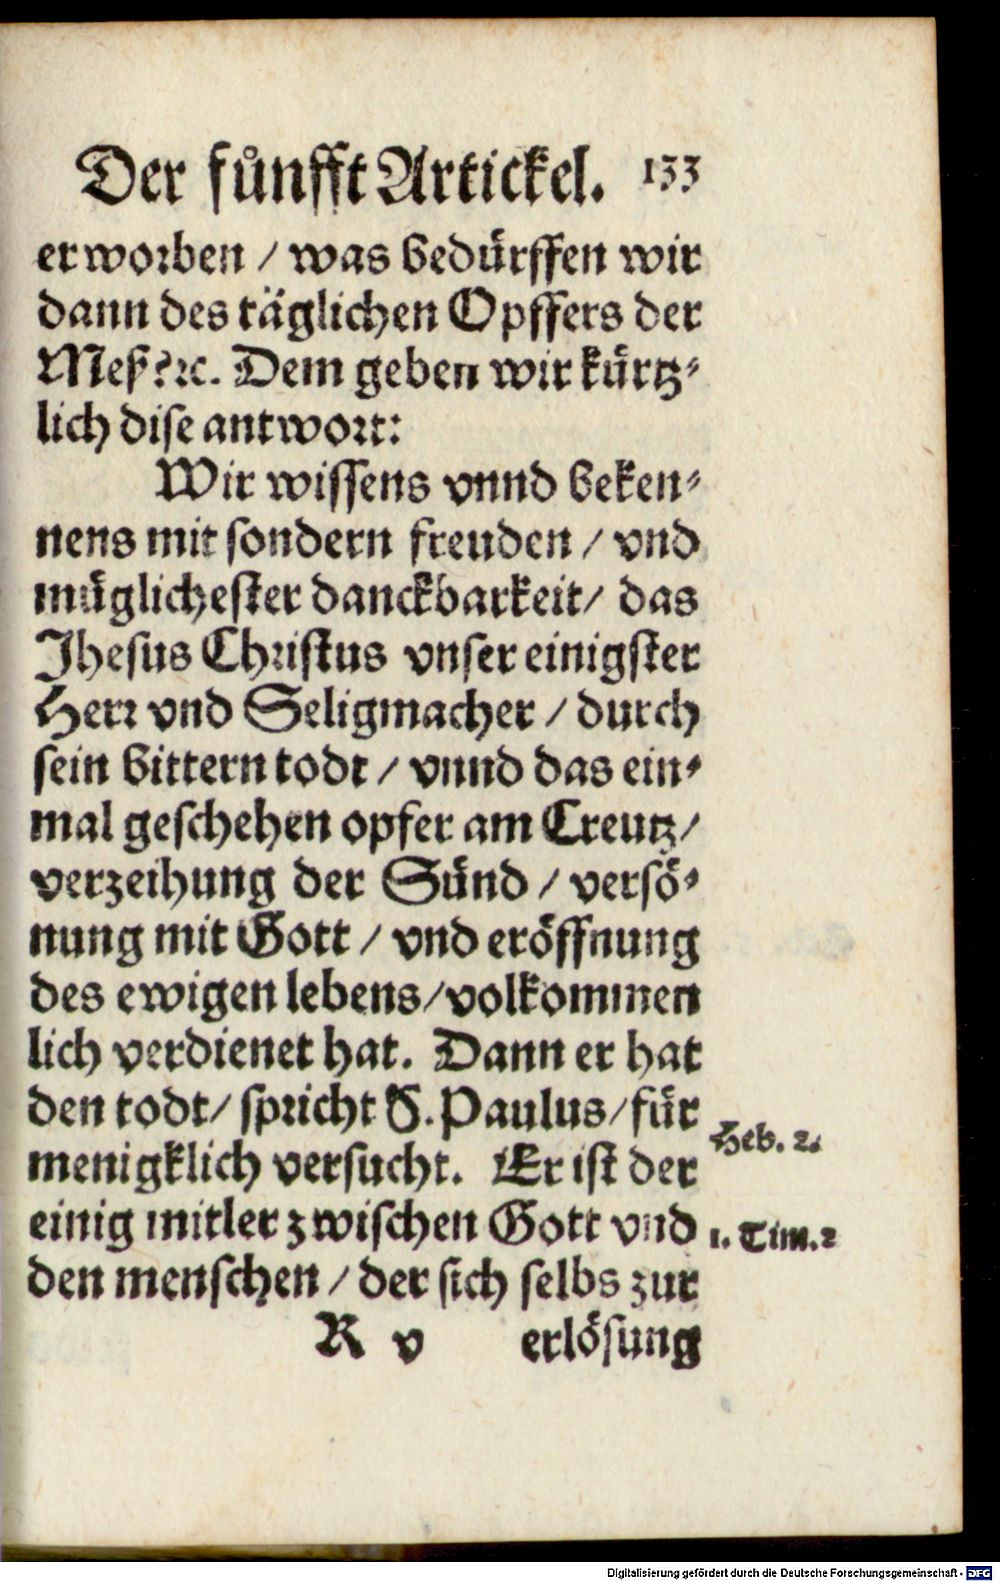 Der fuͤnfft Artickel. 133
erworben / was bedürffen wir
dann des täglichen Opffers der
Meß?ꝛc. Dem geben wir kürtz⸗
lich dise antwort:
Wir wissens vnnd beken⸗
nens mit sondern freuden / vnd
müglichester danckbarkeit / das
Jhesus Christus vnser einigster
Herr vnd Seligmacher / durch
sein bittern todt / vnnd das ein⸗
mal geschehen opfer am Creutz /
verzeihung der Sünd / versö⸗
nung mit Gott / vnd eröffnung
des ewigen lebens / volkommen
lich verdienet hat. Dann er hat
den todt / spricht S. Paulus / für
menigklich versucht. Er ist der
Heb. 2.
einig mitler zwischen Gott vnd
1. Tim. 2
den menschen / der sich selbs zur
R v erlösung
Digitalisierung gefördert durch die Deutsche Forschungsgemeinschaft - DFG